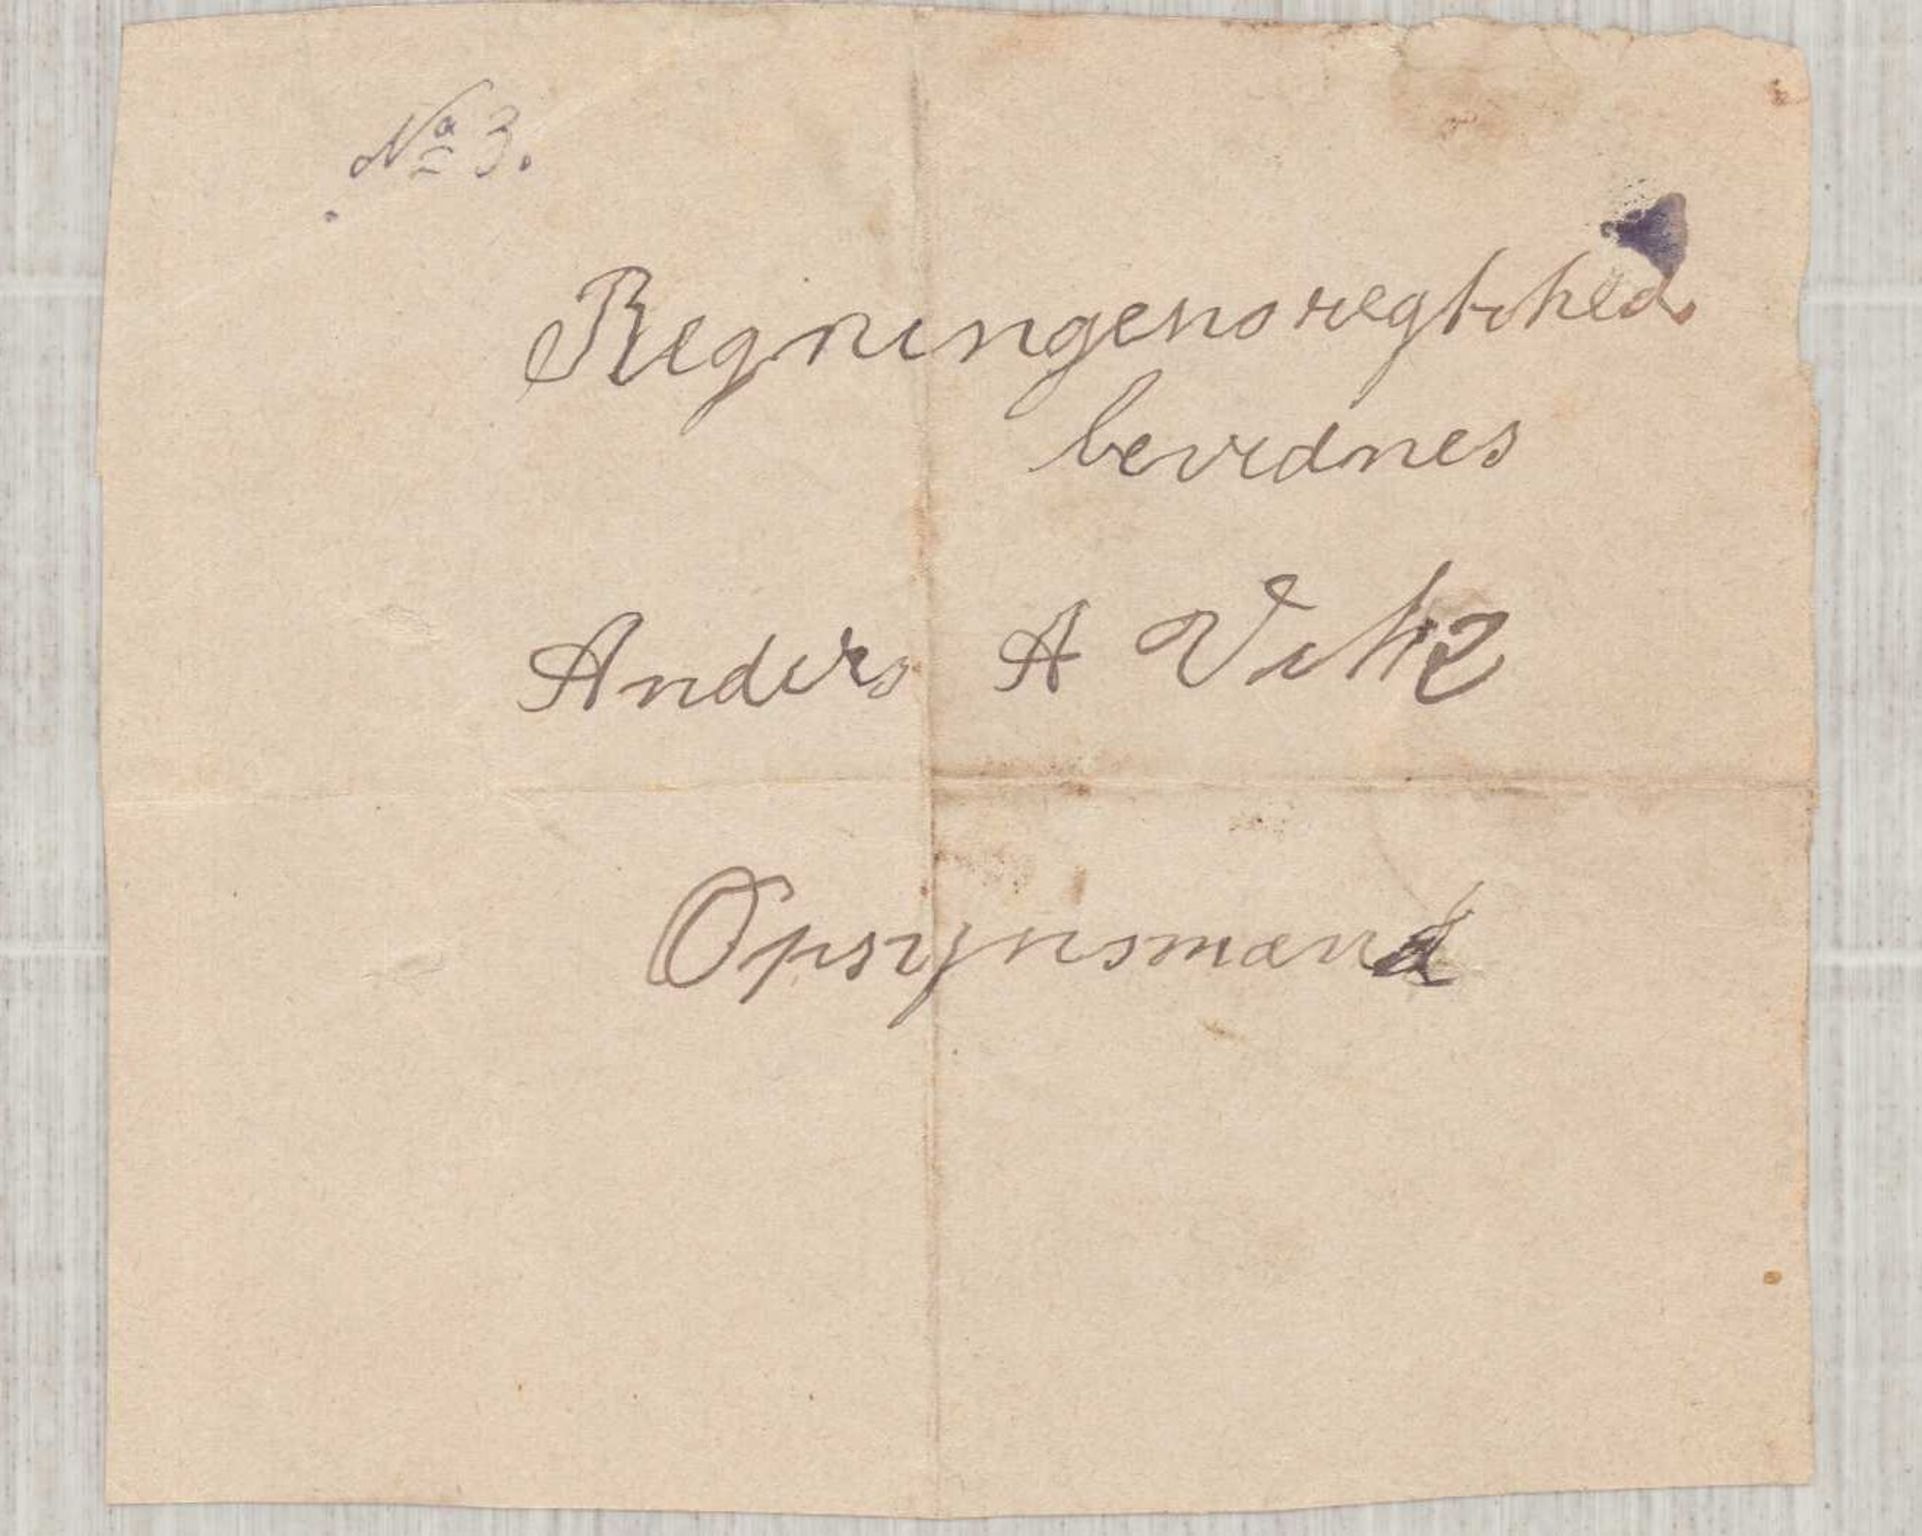 No 3.
Regningens regtihed
bevidnes
Anders A
Opsynsmand